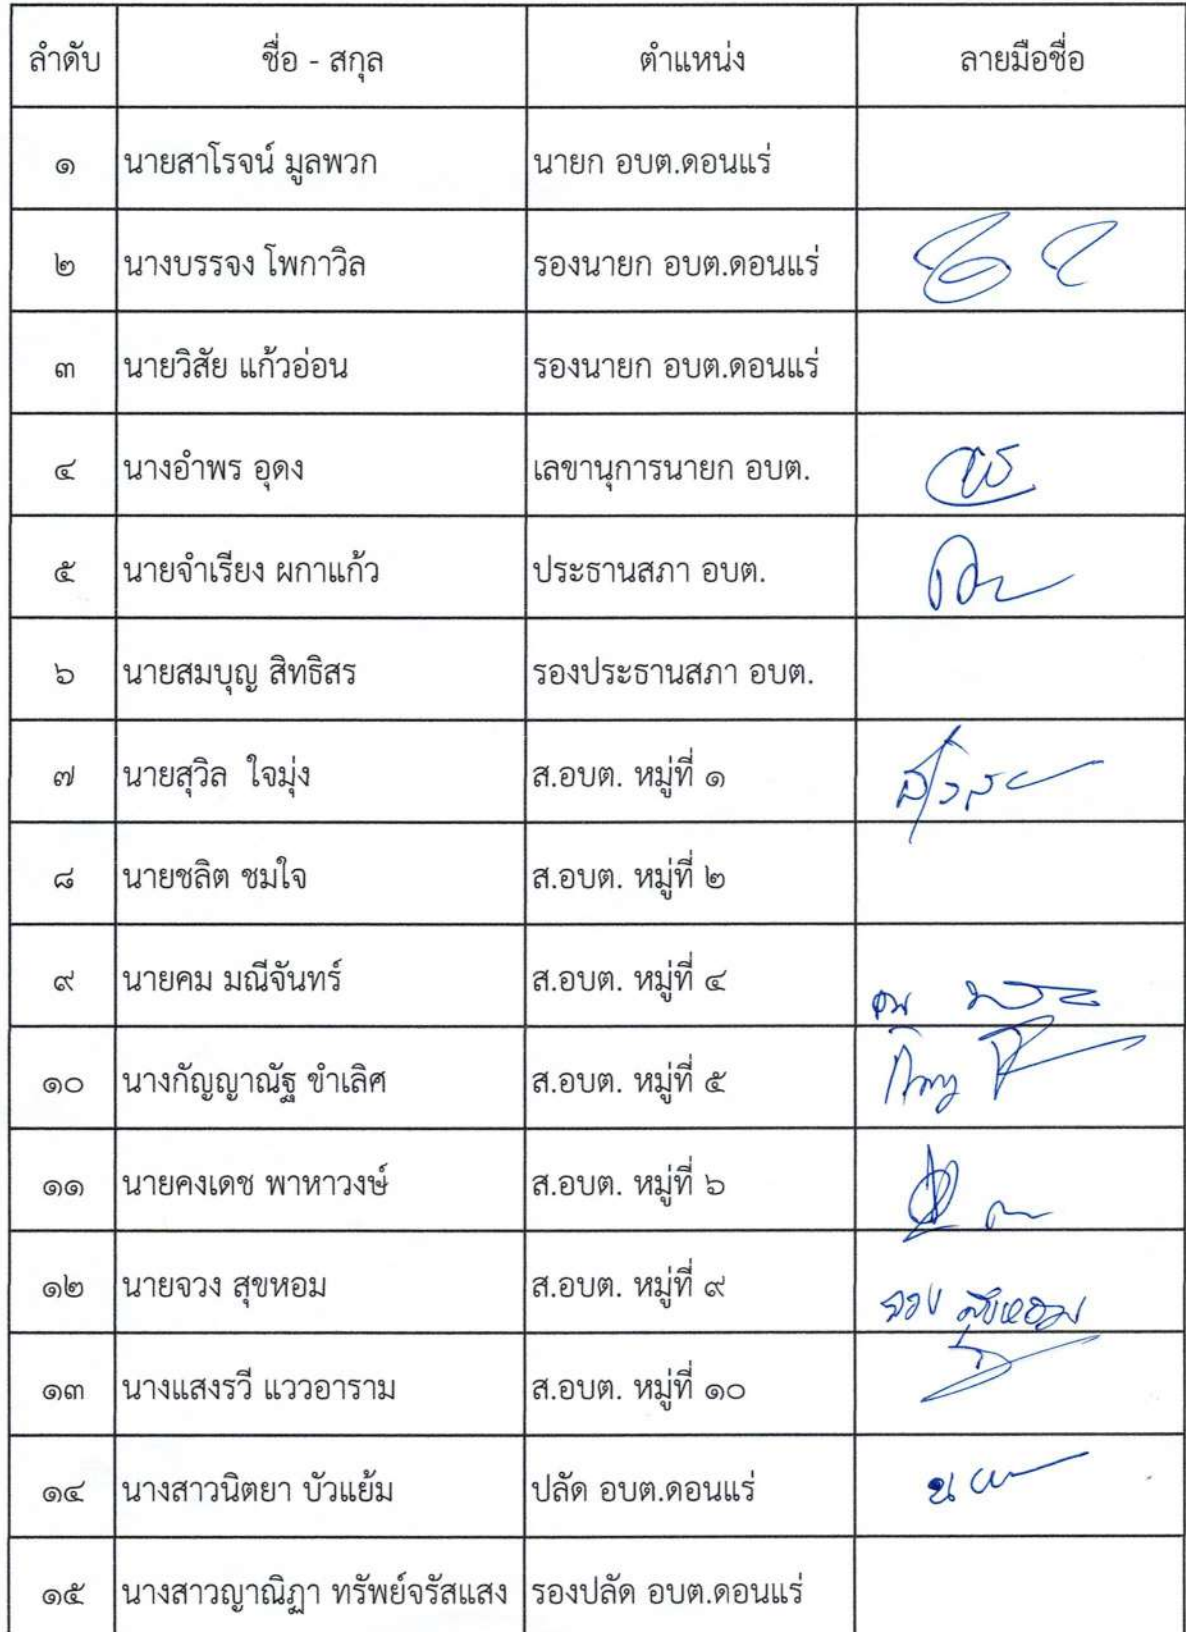 ลำดับ ชื่อ - สกุล ตำแหน่ง ลายมือชื่อ
๑ นายสาโรจน์ มูลพวก นายก อบต.ดอนแร่
๒ นางบรรจง โพกาวิล รองนายก อบต.ดอนแร่
๓ นายวิสัย แก้วอ่อน รองนายก อบต.ดอนแร่
๔ นางอำพร อุดง เลขานุการนายก อบต.
๕ นายจำเรียง ผกาแก้ว ประธานสภา อบต.
๖ นายสมบุญ สิทธิสร รองประธานสภา อบต.
๗ นายสุวิล ใจมุ่ง ส.อบต. หมู่ที่ ๑
๘ นายชลิต ชมใจ ส.อบต. หมู่ที่ ๒
๙ นายคม มณีจันทร์ ส.อบต. หมู่ที่ ๔
๑๐ นางกัญญาณัฐ ขำเลิศ ส.อบต. หมู่ที่ ๕
๑๑ นายคงเดช พาหาวงษ์ ส.อบต. หมู่ที่ ๖
๑๒ นายจวง สุขหอม ส.อบต. หมู่ที่ ๙ จวง สุขหอม
๑๓ นางแสงรวี แววอาราม ส.อบต. หมู่ที่ ๑๐
๑๔ นางสาวนิตยา บัวแย้ม ปลัด อบต.ดอนแร่
๑๕ นางสาวญาณิฏา ทรัพย์จรัสแสง รองปลัด อบต.ดอนแร่